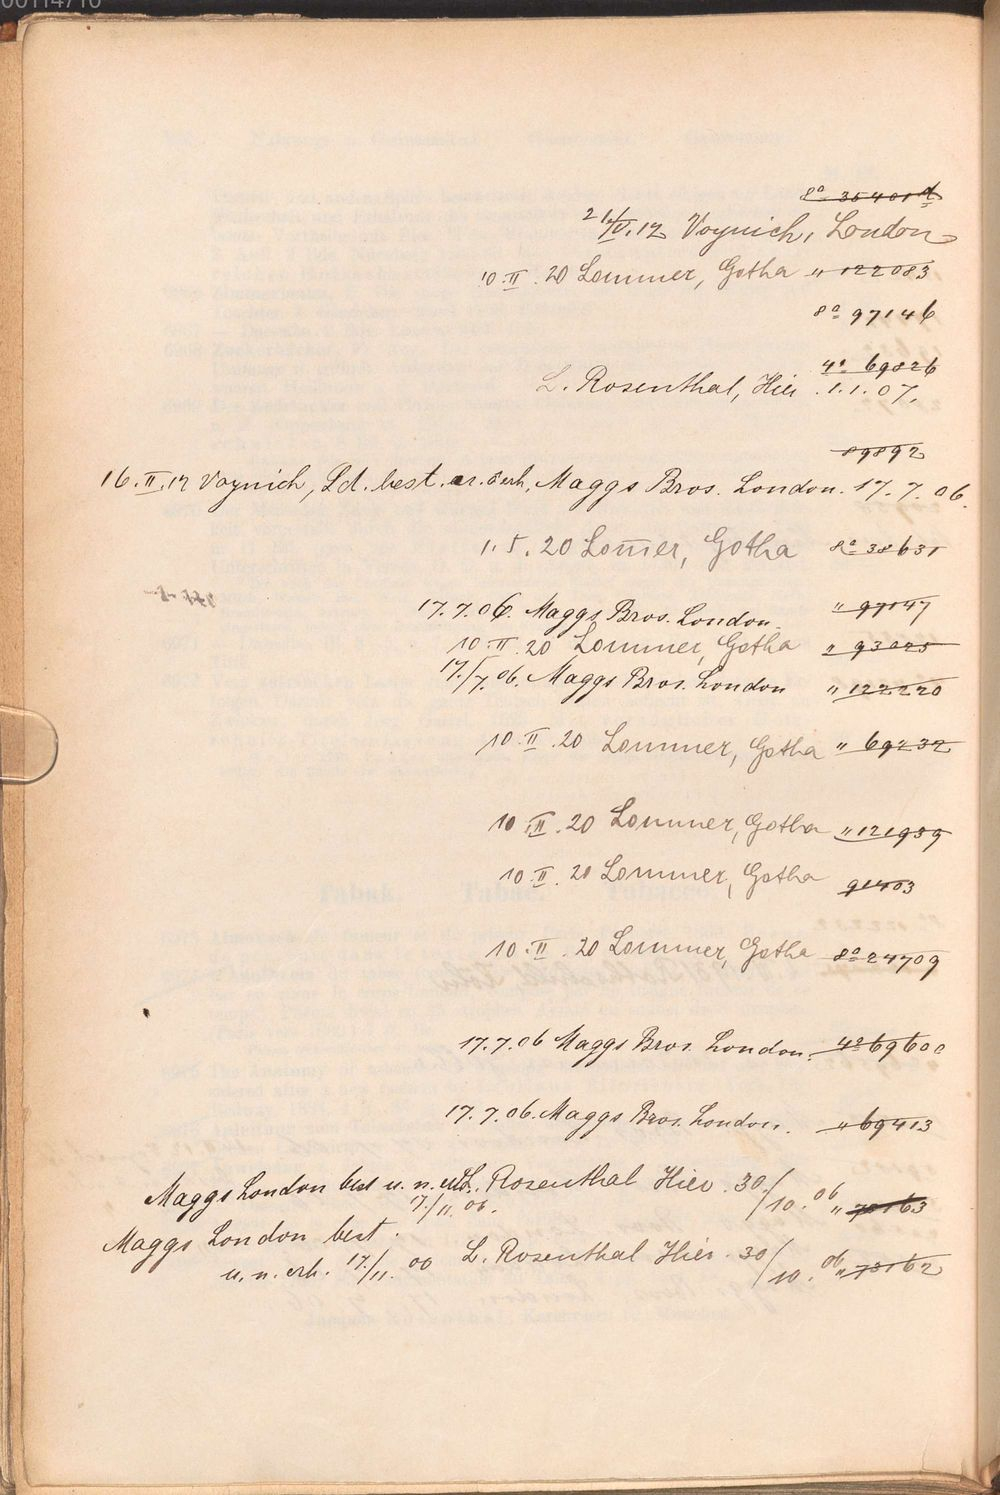 00114710
8° 35401 d
21/IV.12 Voynich, London
10.II.20 Lommer, Gotha " 122083
8° 97146
4° 69826
L. Rosenthal, Hier 1.1.07.
89892
16.II.12 Voynich, Ld. best. er. erh. Maggs Bros. London. 17.7.06.
1.5.20 Lom̅er, Gotha 8° 38631
17.7.06. Maggs Bros. London. " 97147
10.II.20 Lommer, Gotha " 93025
17./7.06. Maggs Bros. London " 122220
10.II.20 Lommer, Gotha " 69232
10.II.20 Lommer, Gotha " 121939
10.II.20 Lommer, Gotha 91403
10.II.20 Lommer, Gotha 8° 24709
17.7.06 Maggs Bros. London. 4° 69600
17.7.06. Maggs Bros. London. " 69413
Maggs London best u. n. erh. L. Rosenthal Hier. 30./10.06 " 73163
17./11.06.
Maggs London best.
u. n. erh. 17./11. 00 L. Rosenthal Hier. 30/10.06 " 73162